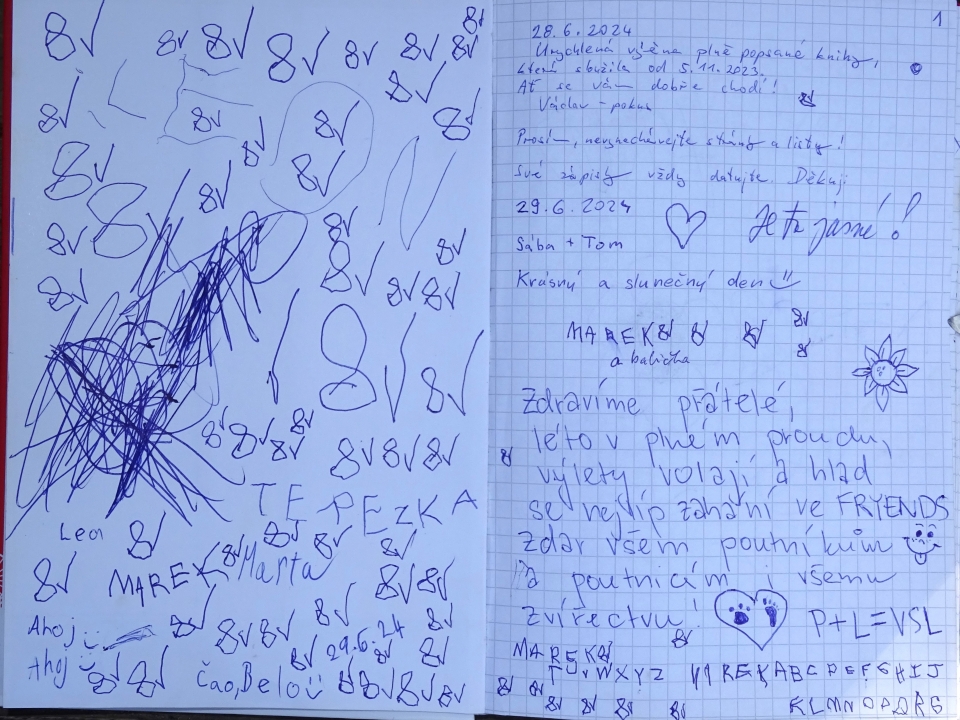 8√ 8√ 8√ 8√ 8√ 8√ 8√ 8√
8√ 8√ 8√ 8√ 8√
8√ 8√ 8√
8√ 8√ 8√
8√ 8√ 8√
8√ 8√ 8√
8√ 8√
8√ 8√ 8√ 8√
8√ 8√ 8√
TEREZKA
Leon
8√ 8√ 8√ 8√
MAREK 8√ Marta
8√ 8√ 8√
Ahoj
8√ 8√ 8√ 8√ 8√
29.6.24
Ahoj
8√ 8√
Čao, Belo
8√ 8√ 8√ 8√
1
28.6.2024
Urychlená výměna plně popsané knihy,
která sloužila od 5.11.2023.
Ať se vám dobře chodí!
Václav - pokus
Prosím, nevynechávejte strany a listy!
Své zápisky vždy datujte. Děkuji
29.6.2024
Je to jasné!
Sába + Tom
Krásný a slunečný den
MAREK 8√ 8√ 8√ 8√
a babička
Zdravíme přátelé,
léto v plném proudu,
výlety volají a hlad
se nejlíp zahání ve FRYENDS
zdar všem poutníkům
a poutnicím i všemu
zvířectvu!
P+L=VSL
MAREK 8√
TUVWXYZ
MAREK ABCDEFGHIJ
KLMNOPQRS
8√ 8√ 8√ 8√ 8√ 8√